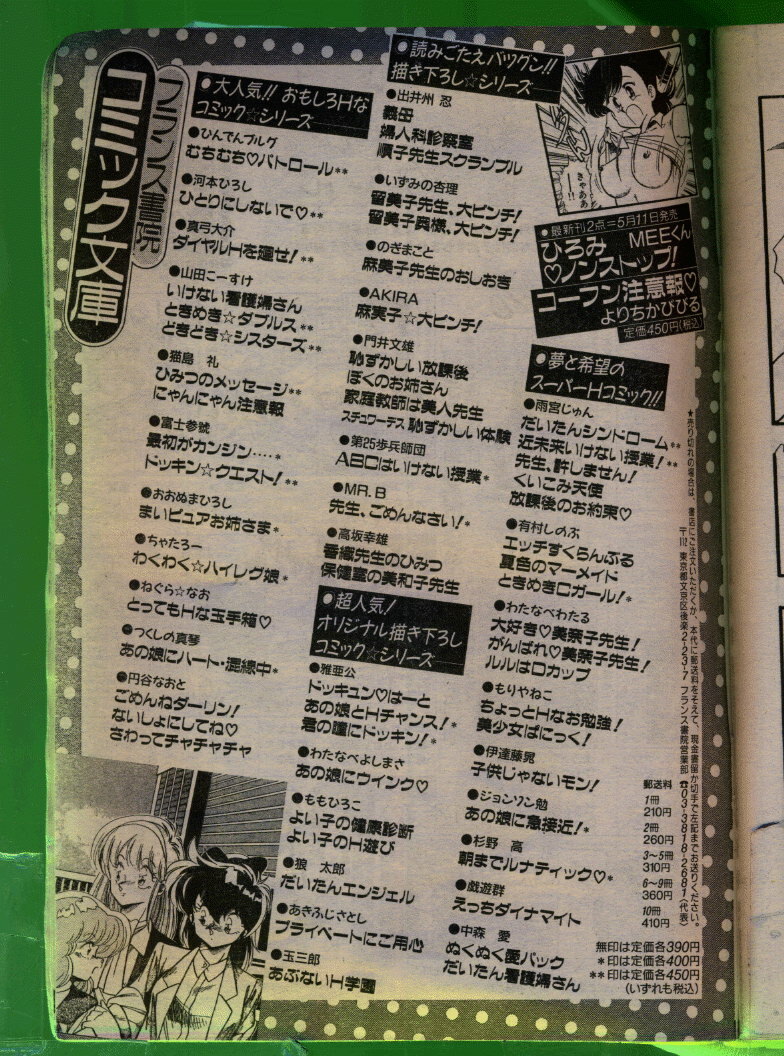 フランス書院
コミック文庫
●大人気!! おもしろHな
コミック☆シリーズ
●ひんでんブルグ
むちむち♡パトロール**
●河本ひろし
ひとりにしないで♡**
●真弓大介
ダイヤルHを廻せ!**
●山田こーすけ
いけない看護婦さん
ときめき☆ダブルス**
どきどき☆シスターズ**
●猫島 礼
ひみつのメッセージ**
にゃんにゃん注意報
●富士参號
最初がカンジン‥‥*
ドッキン☆クエスト!**
●おおぬまひろし
まいピュアお姉さま*
●ちゃたろー
わくわく☆ハイレグ娘*
●ねぐら☆なお
とってもHな玉手箱♡
●つくしの真琴
あの娘にハート・混線中*
●円谷なおと
ごめんねダーリン!
ないしょにしてね♡
さわってチャチャチャ
●読みごたえバツグン!!
描き下ろし☆シリーズ
●出井州 忍
義母
婦人科診察室
順子先生スクランブル
●いずみの杏理
留美子先生、大ピンチ!
留美子奥様、大ピンチ!
●のぎまこと
麻美子先生のおしおき
●AKIRA
麻実子☆大ピンチ!
●門井文雄
恥ずかしい放課後
ぼくのお姉さん
家庭教師は美人先生
スチュワーデス 恥ずかしい体験
●第25歩兵師団
ABCはいけない授業*
●MR.B
先生、ごめんなさい!*
●高坂幸雄
香織先生のひみつ
保健室の美和子先生
●超人気!
オリジナル描き下ろし
コミック☆シリーズ
●雅亜公
ドッキュン♡はーと
あの娘とHチャンス!*
君の瞳にドッキン!*
●わたなべよしまさ
あの娘にウインク♡
●ももひろこ
よい子の健康診断
よい子のH遊び
●狼 太郎
だいたんエンジェル
●あきふじさとし
プライベートにご用心
●玉三郎
あぶないH学園
きゃああ
●最新刊2点=5月11日発売
ひろみ MEEくん
♡ノンストップ!
コーフン注意報♡
よりちかびびる
定価450円(税込)
●夢と希望の
スーパーHコミック!!
●雨宮じゅん
だいたんシンドローム**
近未来いけない授業!**
先生、許しません!
くいこみ天使
放課後のお約束♡
●有村しのぶ
エッチすくらんぶる
夏色のマーメイド
ときめきCガール!*
●わたなべわたる
大好き♡美奈子先生!
がんばれ♡美奈子先生!
ルルはDカップ
●もりやねこ
ちょっとHなお勉強!
美少女ぱにっく!
●伊達藤晃
子供じゃないモン!
●ジョンソン勉
あの娘に急接近!*
●杉野 高
朝までルナティック♡*
●戯遊群
えっちダイナマイト
●中森 愛
ぬくぬく愛パック
だいたん看護婦さん
★売り切れの場合は、書店にご注文いただくか、本代に郵送料をそえて、現金書留か切手で左記までお送りください。
〒112 東京都文京区後楽2-23-7 フランス書院営業部 ☎03-3818-2681(代表)
郵送料
1冊
210円
2冊
260円
3〜5冊
310円
6〜9冊
360円
10冊
410円
無印は定価各390円
*印は定価各400円
**印は定価各450円
(いずれも税込)